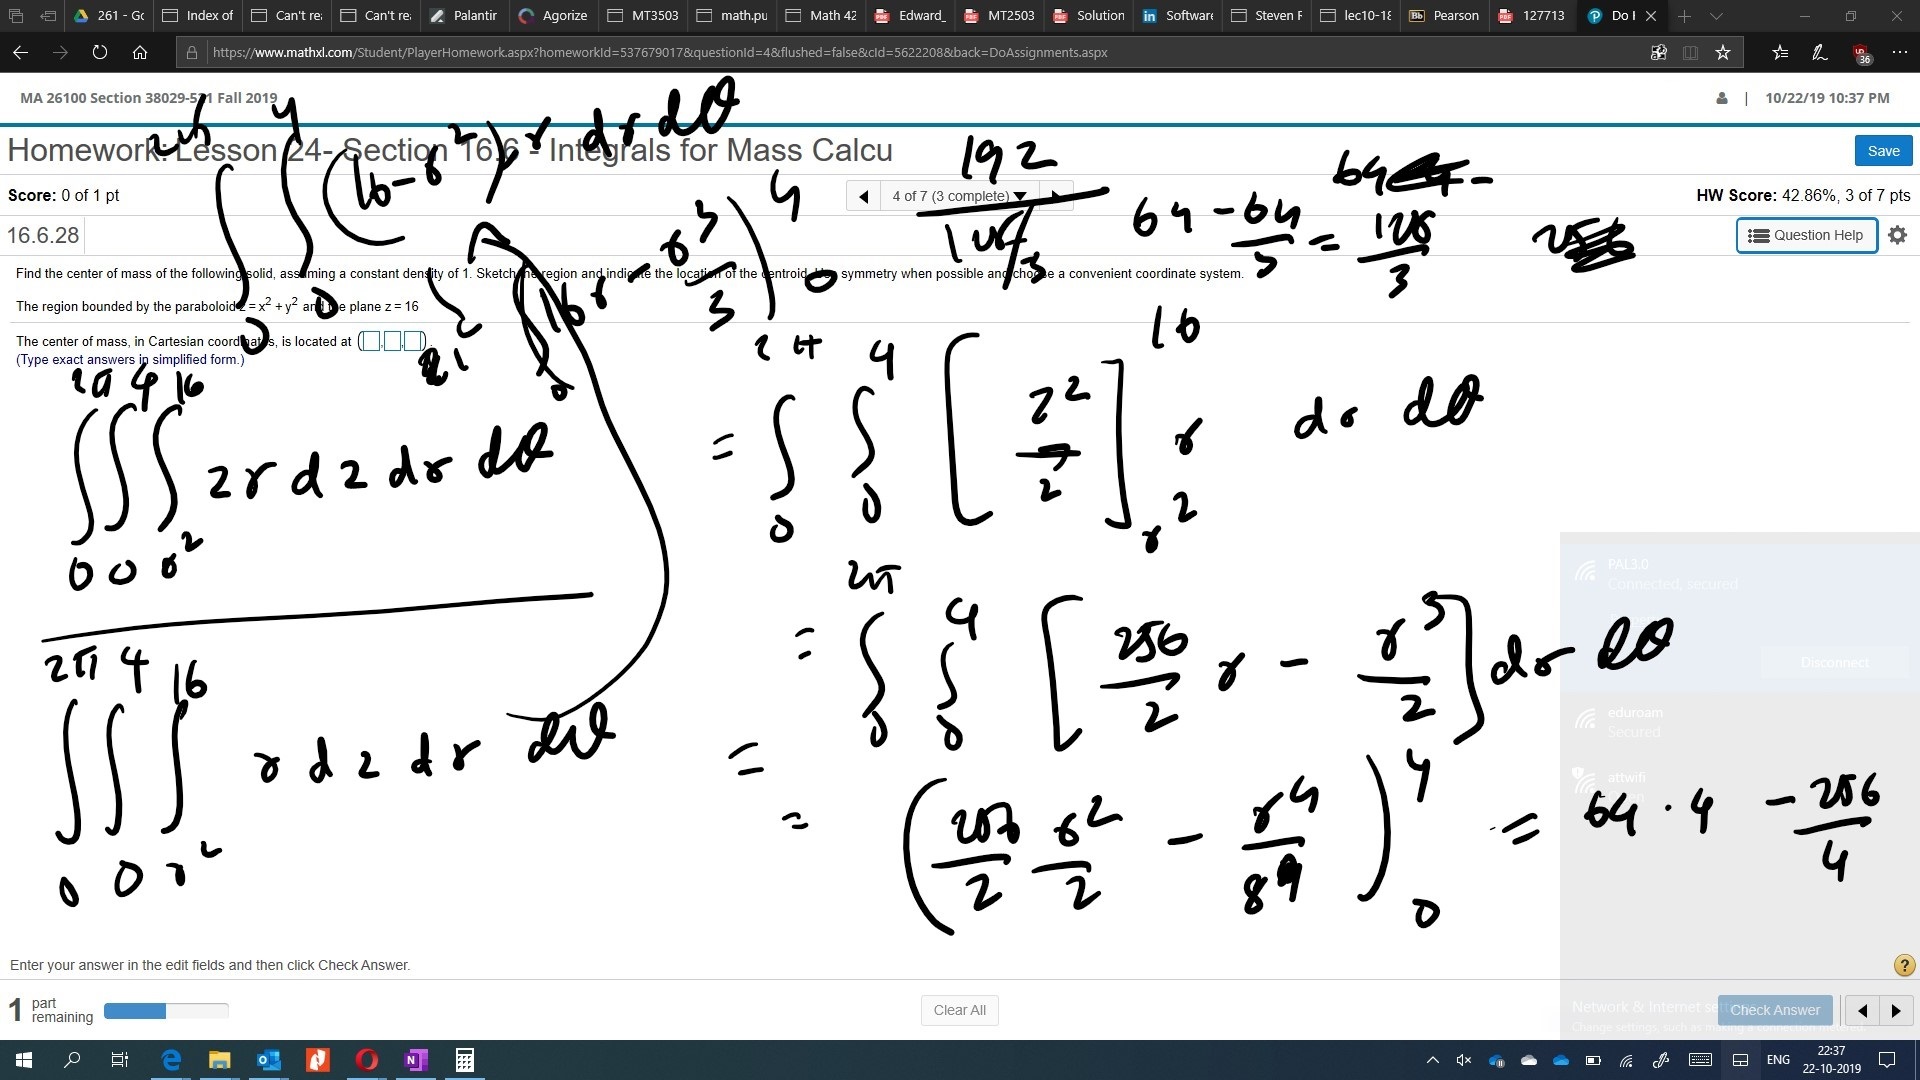 261 - Gc Index of Can't re Can't re Palantir Agorize MT3503 math.pu Math 42 Edward_ MT2503 Solution Software Steven F lec10-18 Pearson 127713 Do I
https://www.mathxl.com/Student/PlayerHomework.aspx?homeworkId=537679017&questionId=4&flushed=false&cId=5622208&back=DoAssignments.aspx
36
MA 26100 Section 38029-521 Fall 2019
10/22/19 10:37 PM
Homework: Lesson 24- Section 16.6 - Integrals for Mass Calcu
Save
Score: 0 of 1 pt
4 of 7 (3 complete)
HW Score: 42.86%, 3 of 7 pts
16.6.28
Question Help
Find the center of mass of the following solid, assuming a constant density of 1. Sketch the region and indicate the location of the centroid. Use symmetry when possible and choose a convenient coordinate system.
The region bounded by the paraboloid z = x² + y² and the plane z = 16
The center of mass, in Cartesian coordinates, is located at ( , , ).
(Type exact answers in simplified form.)
∫ ∫₀⁴ (16 - r²) r dr dθ
16r - r³/3 ) ⁴ ₀
192
64 - 64/3 = 128/3
∫₀^2π ∫₀⁴ ∫_r²^16 z r dz dr dθ
= ∫₀^2π ∫₀⁴ [ z²/2 ]_r²^16 r dr dθ
∫₀^2π ∫₀⁴ ∫_r²^16 r dz dr dθ
= ∫₀^2π ∫₀⁴ [ 256/2 r - r⁵/2 ] dr dθ
=
= ( 256/2 r²/2 - r⁴/8 )₀⁴ = 64 · 4 - 256/4
PAL3.0
Connected, secured
Disconnect
eduroam
Secured
attwifi
Open
Enter your answer in the edit fields and then click Check Answer.
?
1 part remaining
Clear All
Check Answer
Network & Internet settings
Change settings, such as making a connection metered.
ENG
22:37
22-10-2019